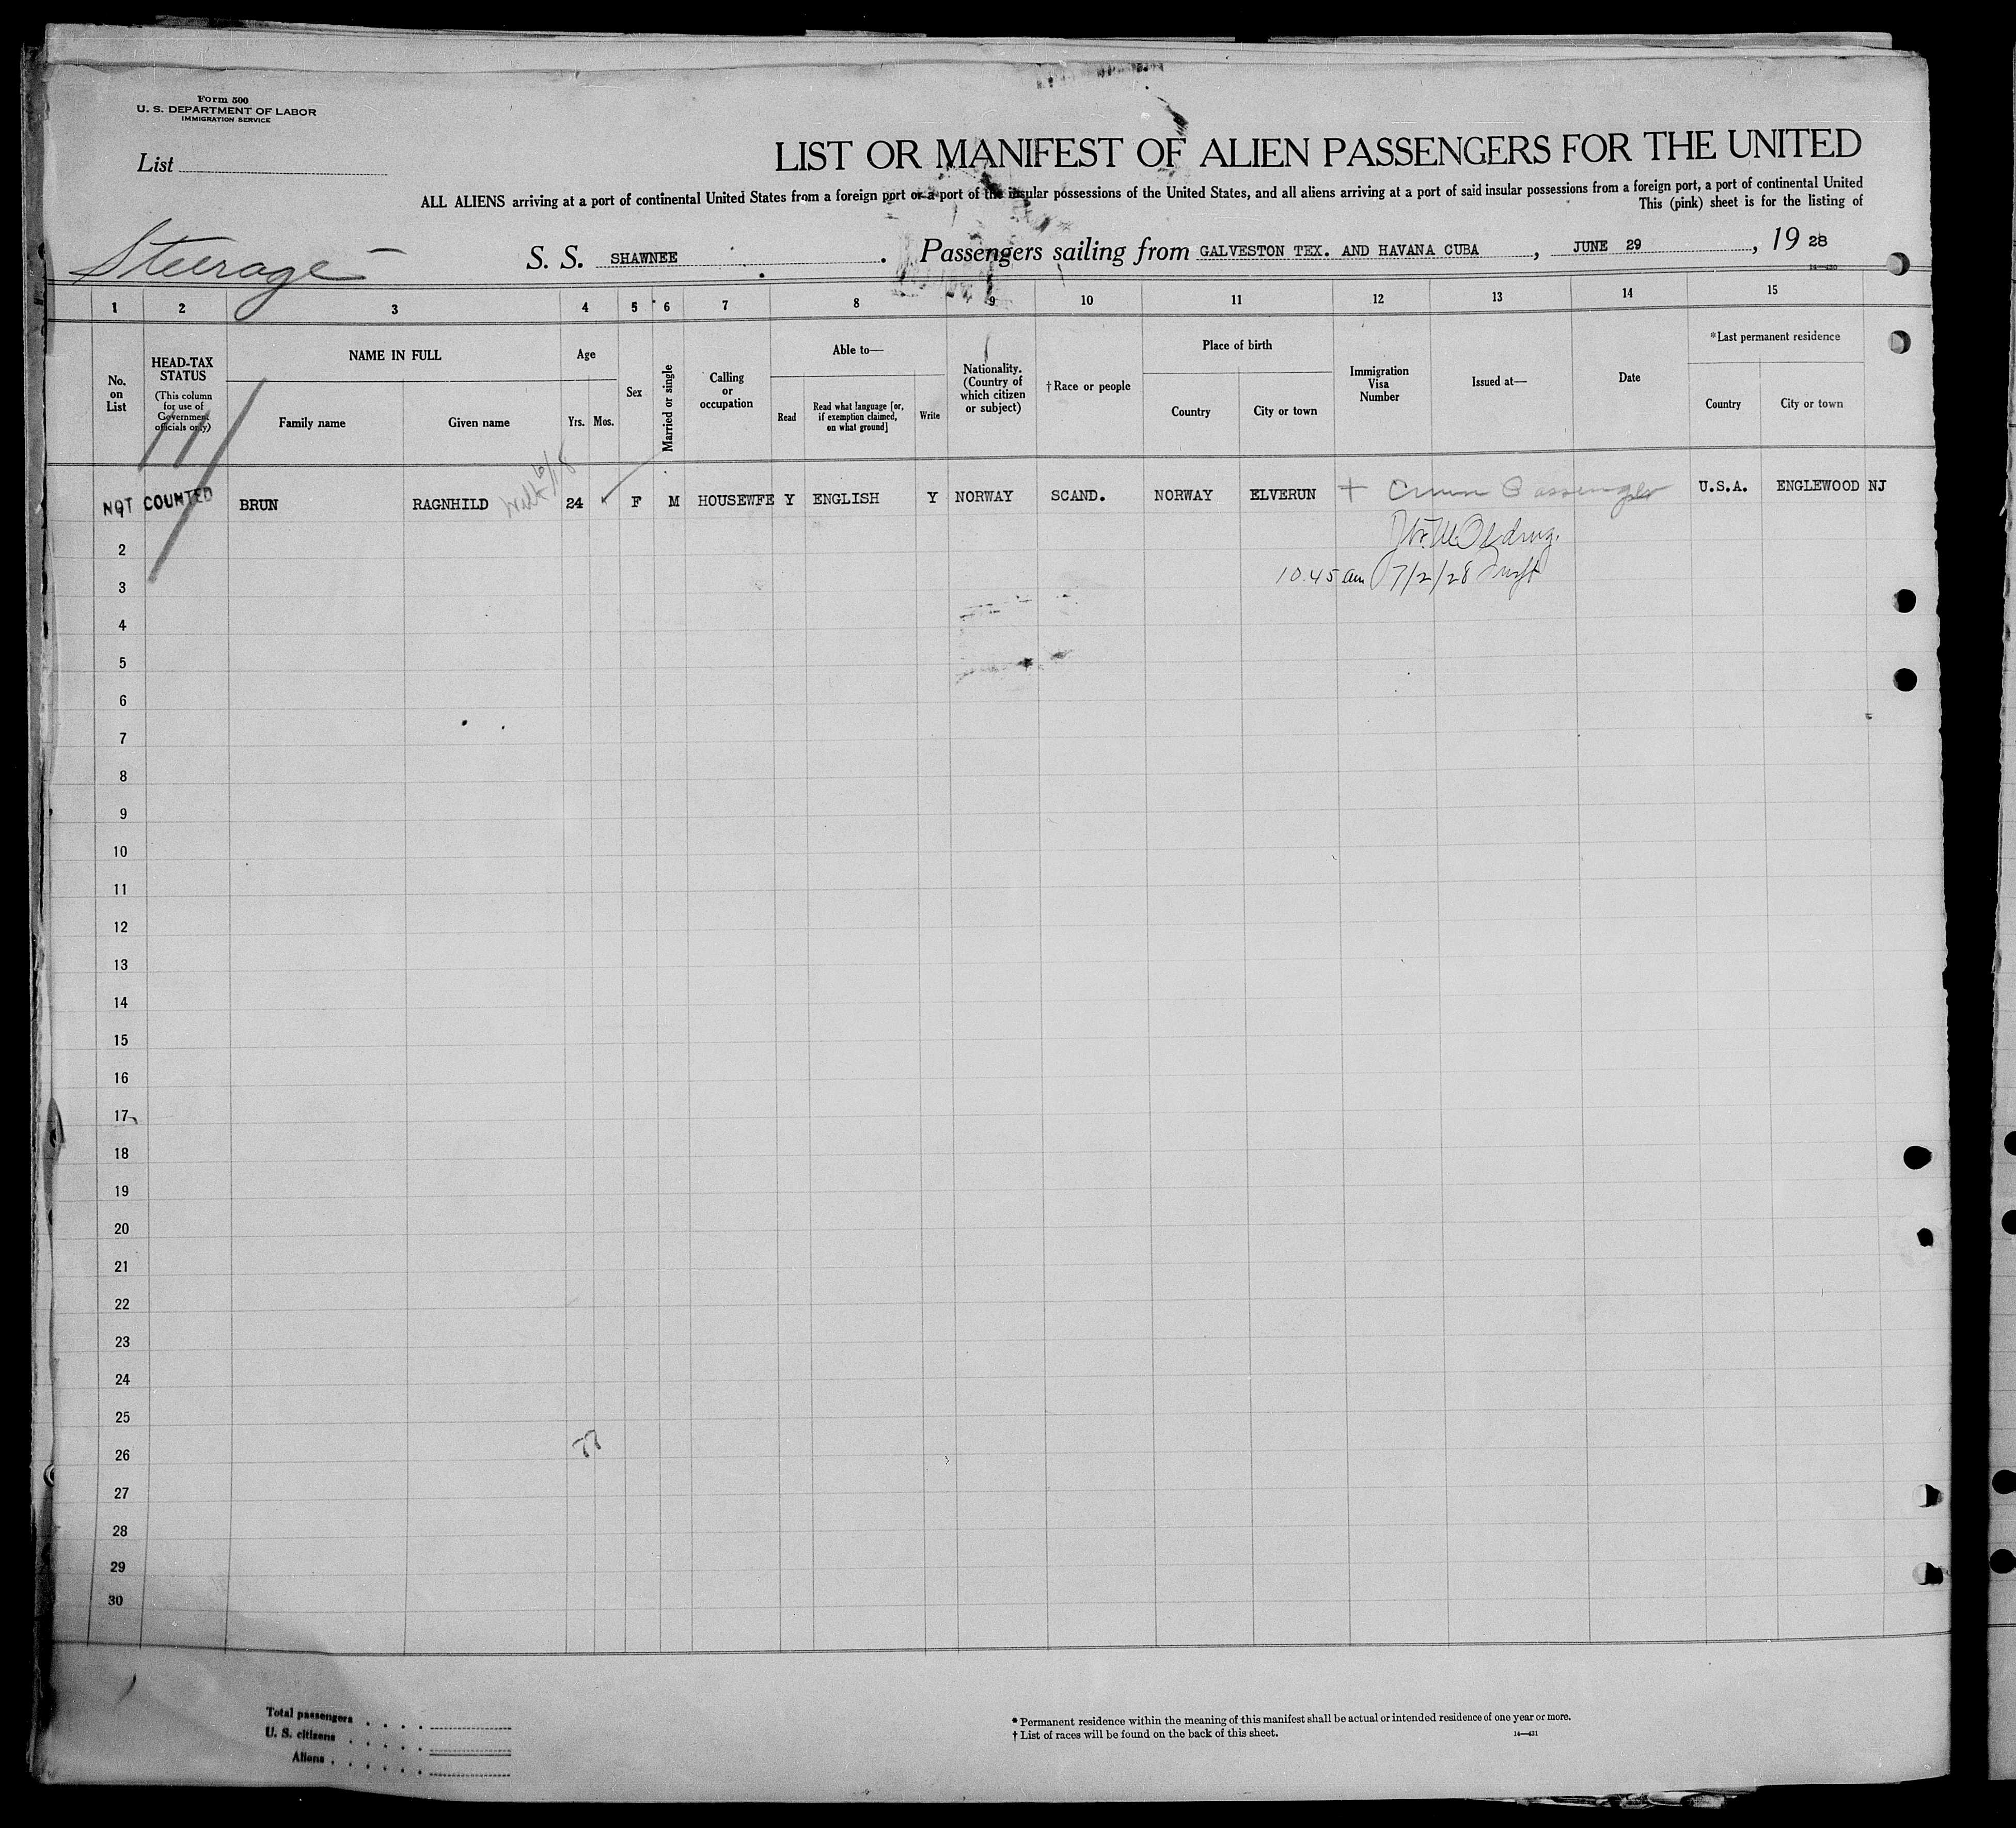 Form 500
U. S. DEPARTMENT OF LABOR
IMMIGRATION SERVICE
List
LIST OR MANIFEST OF ALIEN PASSENGERS FOR THE UNITED
ALL ALIENS arriving at a port of continental United States from a foreign port or a port of the insular possessions of the United States, and all aliens arriving at a port of said insular possessions from a foreign port, a port of continental United
This (pink) sheet is for the listing of
Steerage
S. S. SHAWNEE . Passengers sailing from GALVESTON TEX. AND HAVANA CUBA , JUNE 29 , 19 28
14—430
1 2 3 4 5 6 7 8 9 10 11 12 13 14 15
No. on List
HEAD-TAX STATUS
(This column for use of Government officials only)
NAME IN FULL
Family name Given name
Age
Yrs. Mos.
Sex
Married or single
Calling or occupation
Able to—
Read
Read what language [or, if exemption claimed, on what ground]
Write
Nationality. (Country of which citizen or subject)
†Race or people
Place of birth
Country City or town
Immigration Visa Number
Issued at—
Date
*Last permanent residence
Country City or town
NOT COUNTED BRUN RAGNHILD 24 F M HOUSEWFE Y ENGLISH Y NORWAY SCAND. NORWAY ELVERUN Passenger U.S.A. ENGLEWOOD NJ
10.45 am 7/2/28
2
3
4
5
6
7
8
9
10
11
12
13
14
15
16
17
18
19
20
21
22
23
24
25
26
27
28
29
30
77
Total passengers
U. S. citizens
Aliens
*Permanent residence within the meaning of this manifest shall be actual or intended residence of one year or more.
†List of races will be found on the back of this sheet.
14—431